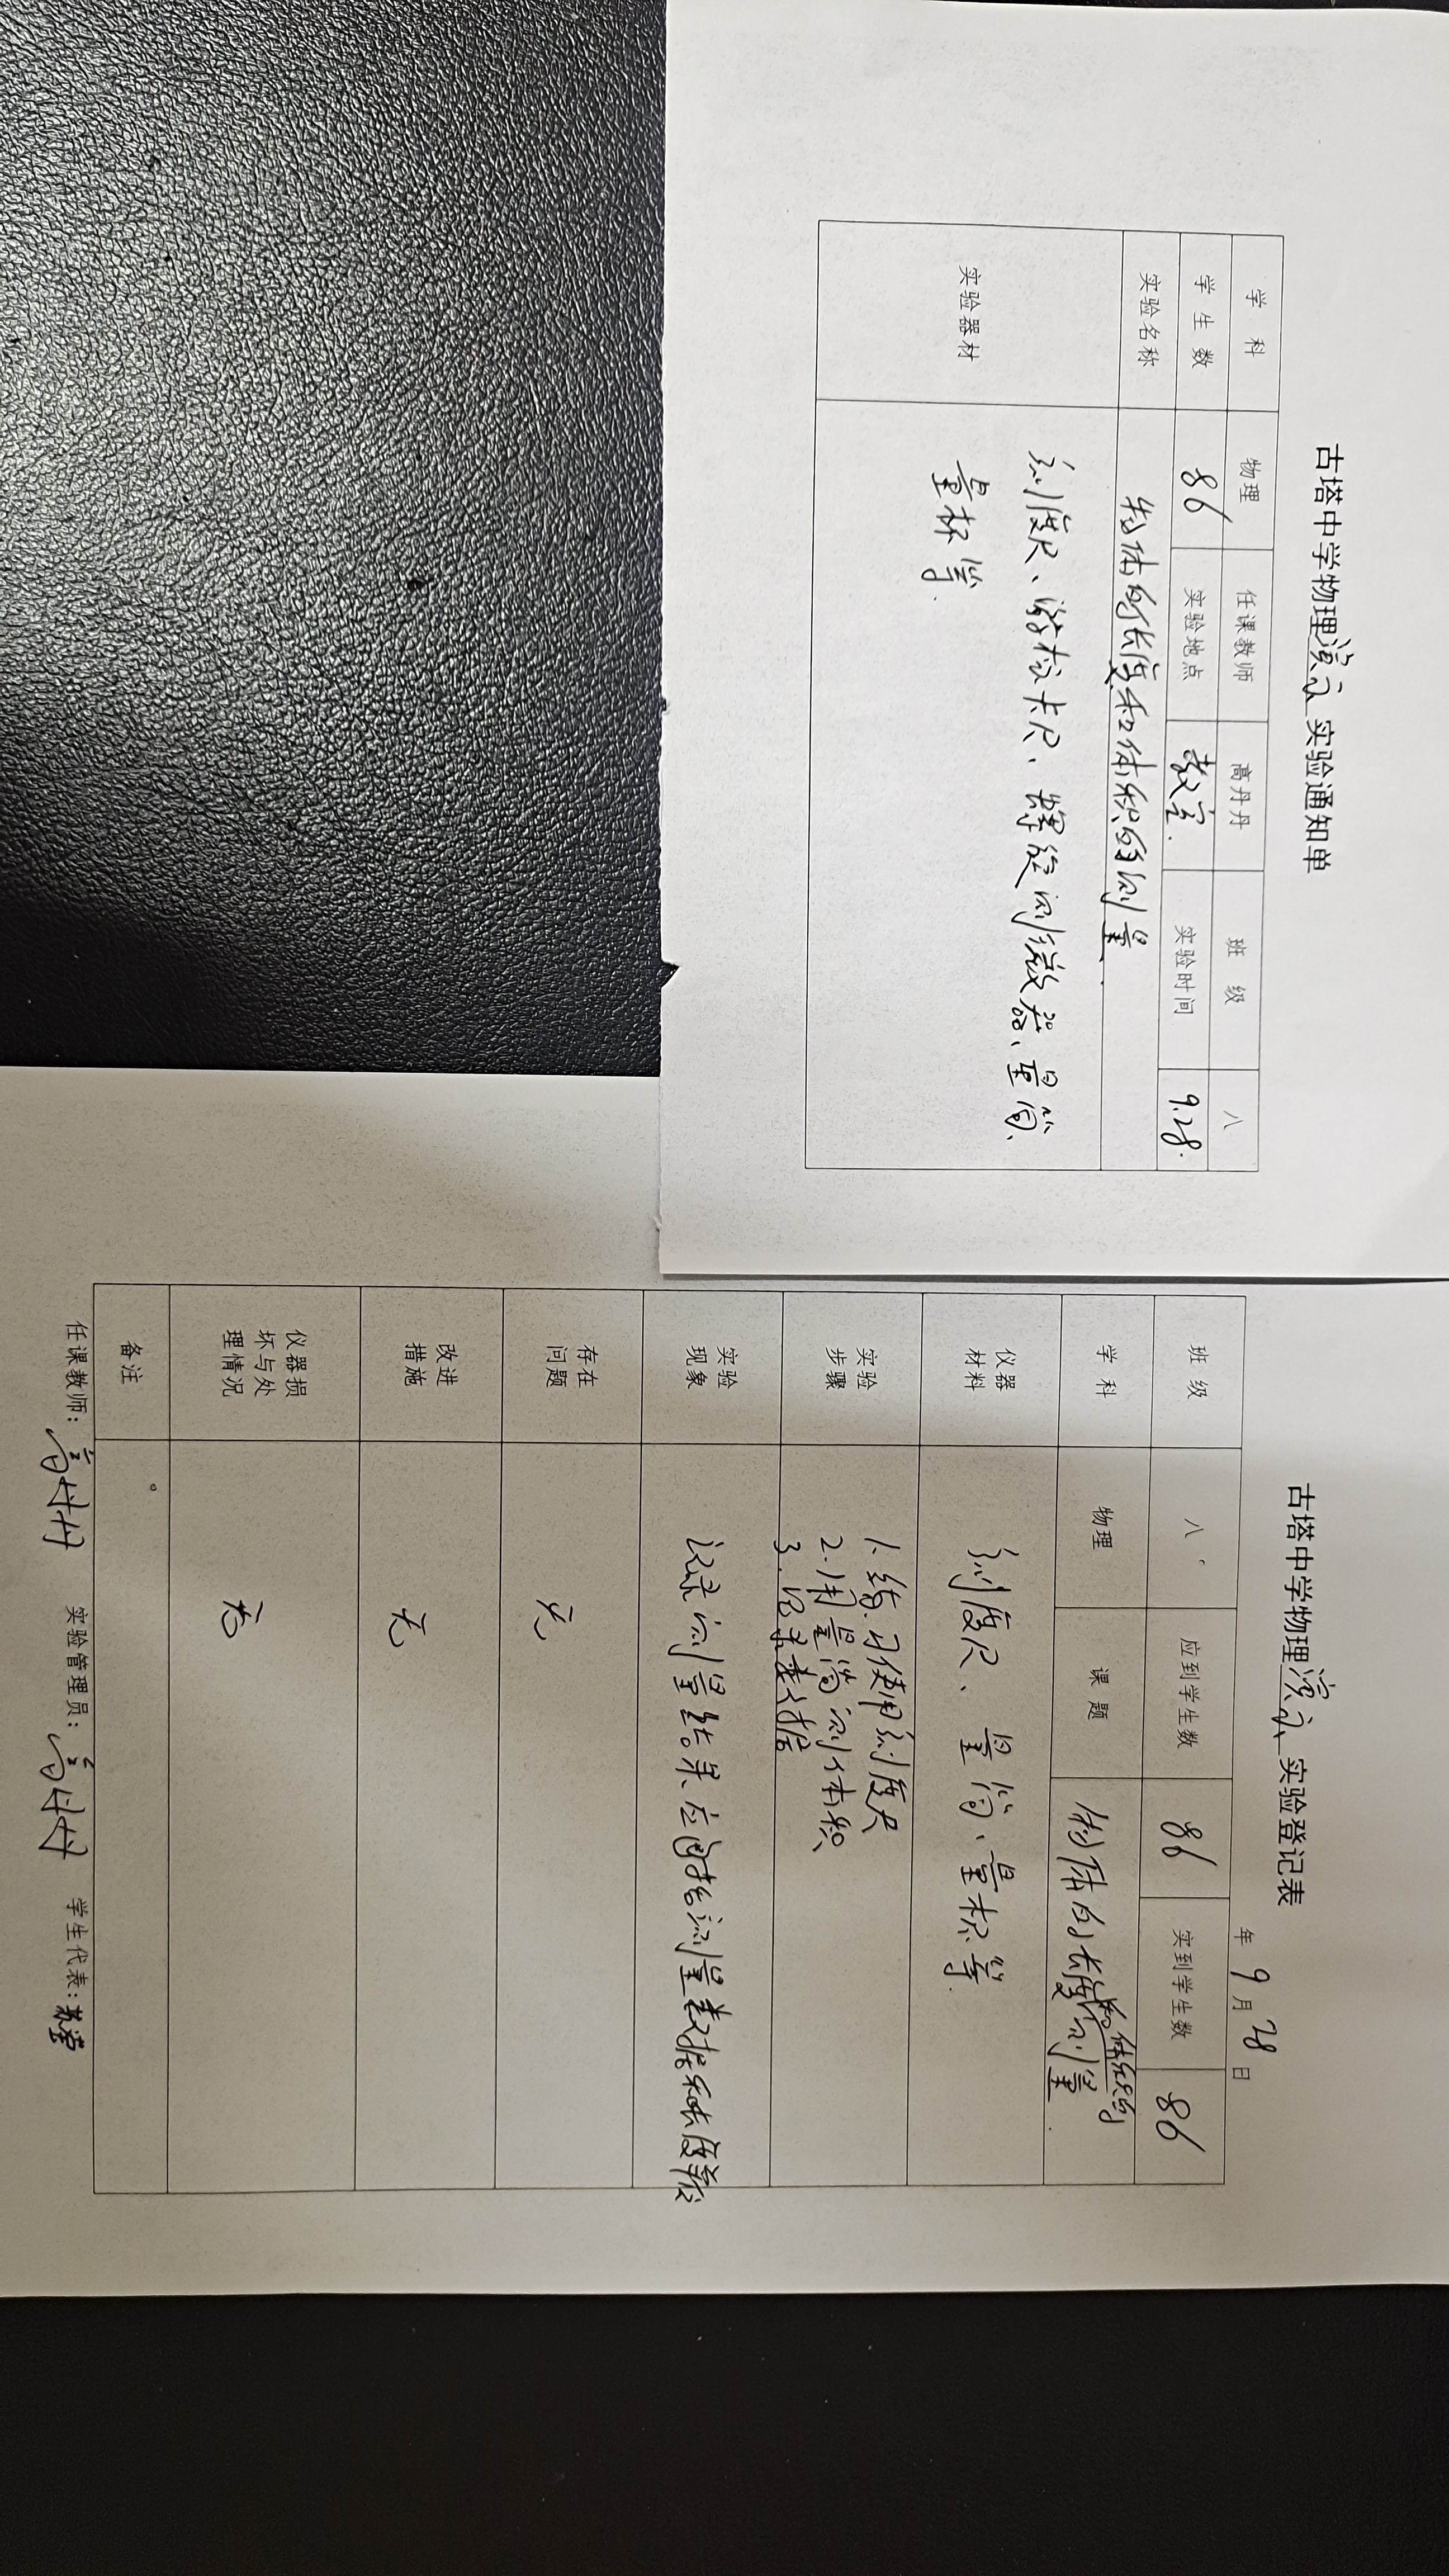 古塔中学物理演示实验通知单
学科 物理 任课教师 高丹丹 班级 八
学生数 86 实验地点 教室. 实验时间 9.28.
实验名称 物体的长度和体积的测量.
实验器材 刻度尺、游标卡尺、螺旋测微器、量筒、
量杯等.
古塔中学物理演示实验登记表
年9月28日
班级 八 应到学生数 86 实到学生数 86
学科 物理 课题 物体的长度和体积的测量.
仪器
材料
刻度尺、量筒、量杯等.
实验
步骤
1.练习使用刻度尺
2.用量筒测体积
3.记录数据
实验
现象
记录测量结果,应包括测量数据和长度单位
存在
问题
无
改进
措施
无
仪器损
坏与处
理情况
无
备注
任课教师:高丹丹 实验管理员:高丹丹 学生代表:苏莹